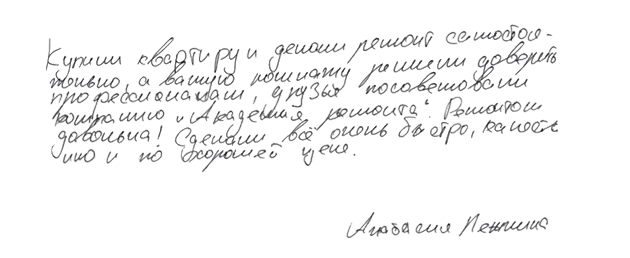 Купили квартиру и делали ремонт самостоя-
тельно, а ванную комнату решили доверить
профессионалам, друзья посоветовали
компанию „Академия ремонта“. Ремонтом
довольна! Сделали всё очень быстро, качест
нно и по хорошей цене.
Анастасия